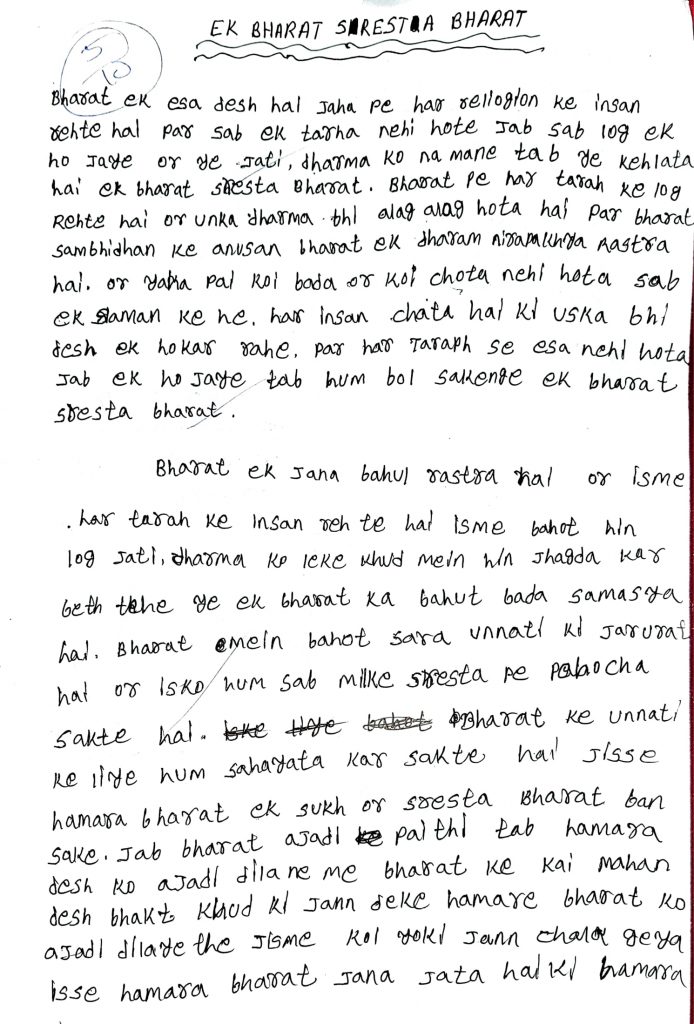 EK BHARAT SRESTA BHARAT
5/10
Bharat ek esa desh hai Jaha pe har reliogion ke insan
rehte hai par sab ek tarha nehi hote Jab sab log ek
ho Jaye or ye Jati, dharma ko na mane tab ye kehlata
hai ek bharat sresta Bharat. Bharat pe har tarah ke log
Rehte hai or unka dharma bhi alag alag hota hai par bharat
sambhidhan ke anusan bharat ek dharam nirapakhya Rastra
hai. or yaha pai koi bada or koi chota nehi hota sab
ek saman ke he. har insan chata hai ki uska bhi
desh ek hokar rahe. par har Taraph se esa nehi hota
Jab ek ho Jaye tab hum bol sakenge ek bharat
sresta bharat.
Bharat ek Jana bahul rastra hai or isme
har tarah ke insan reh te hai isme bahot hin
log Jati, dharma ko leke khud mein hin Jhagda kar
beth the ye ek bharat ka bahut bada samasya
hai. Bharat mein bahot sara unnati ki Jarurat
hai or isko hum sab milke sresta pe pahocha
sakte hai. Bharat ke unnati
ke liye hum sahayata kar sakte hai Jisse
hamara bharat ek sukh or sresta Bharat ban
sake. Jab bharat aJadi pai thi tab hamara
desh ko aJadi dilane me bharat ke kai mahan
desh bhakt khud ki Jann deke hamare bharat ko
aJadi dilaye the Jisme koi yoki Jann chala geya
isse hamara bharat Jana Jata hai ki hamara